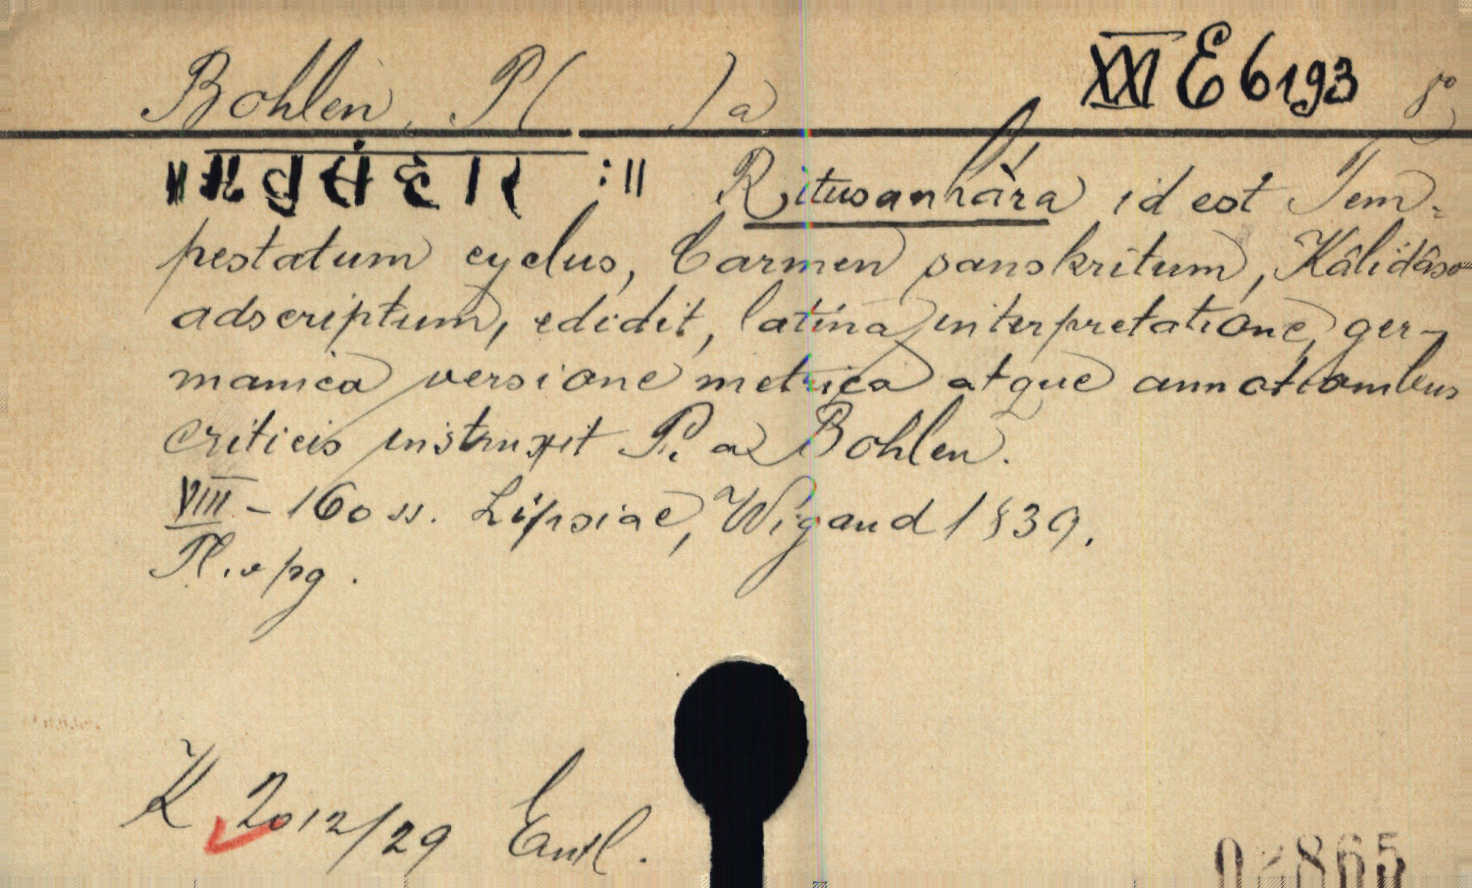 Bohlen, P( ) a XXI E 6193 8°
॥ ऋतुसंहार :॥ Ritusanhâra id est Tem-
pestatum cyclus, Carmen sanskritum, Kâlidâso
adscriptum, edidit, latina interpretatione, ger-
manica versione metrica atque annotationibus
criticis instruxit P. a Bohlen.
VIII - 160 ss. Lipsiae, Wigand 1839.
K 2012/29
02865